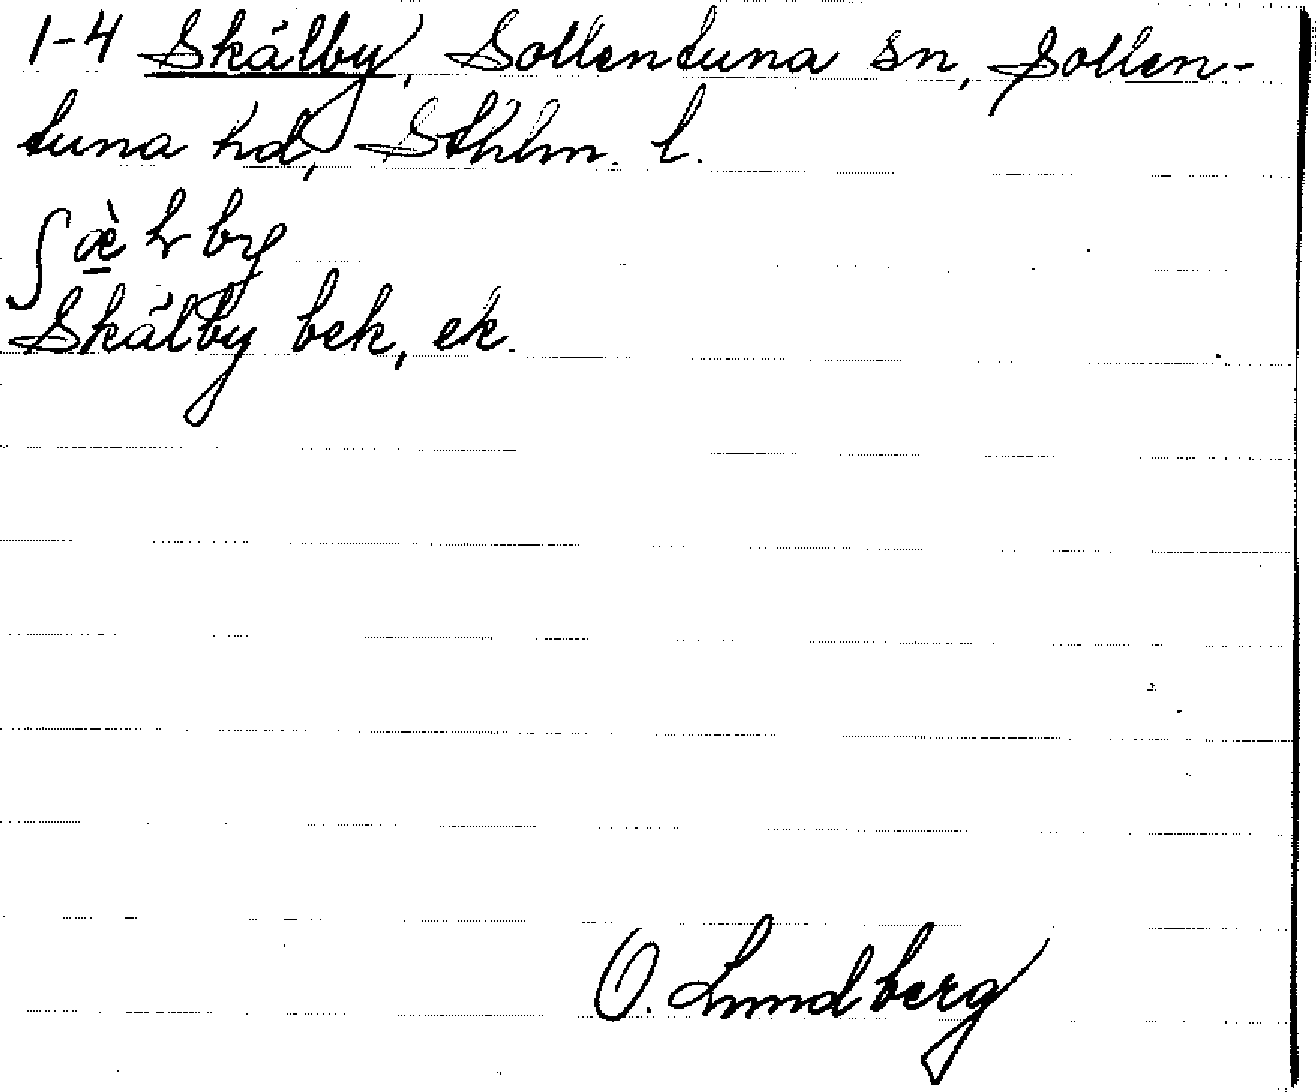 1-4 Skälby, Sollentuna sn, Sollen-
tuna hd, Sthlm. l.
Skälby bek, ek.
O. Lundberg